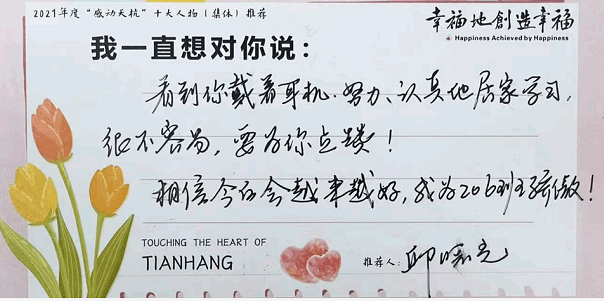 2021年度“感动天杭”十大人物（集体）推荐
幸福地創造幸福
Happiness Achieved by Happiness
我一直想对你说：
看到你戴着耳机、努力、认真地居家学习，
很不容易，要为你点赞！
相信今后会越来越好，成为206班骄傲！
TOUCHING THE HEART OF
TIANHANG
推荐人：邱曙光